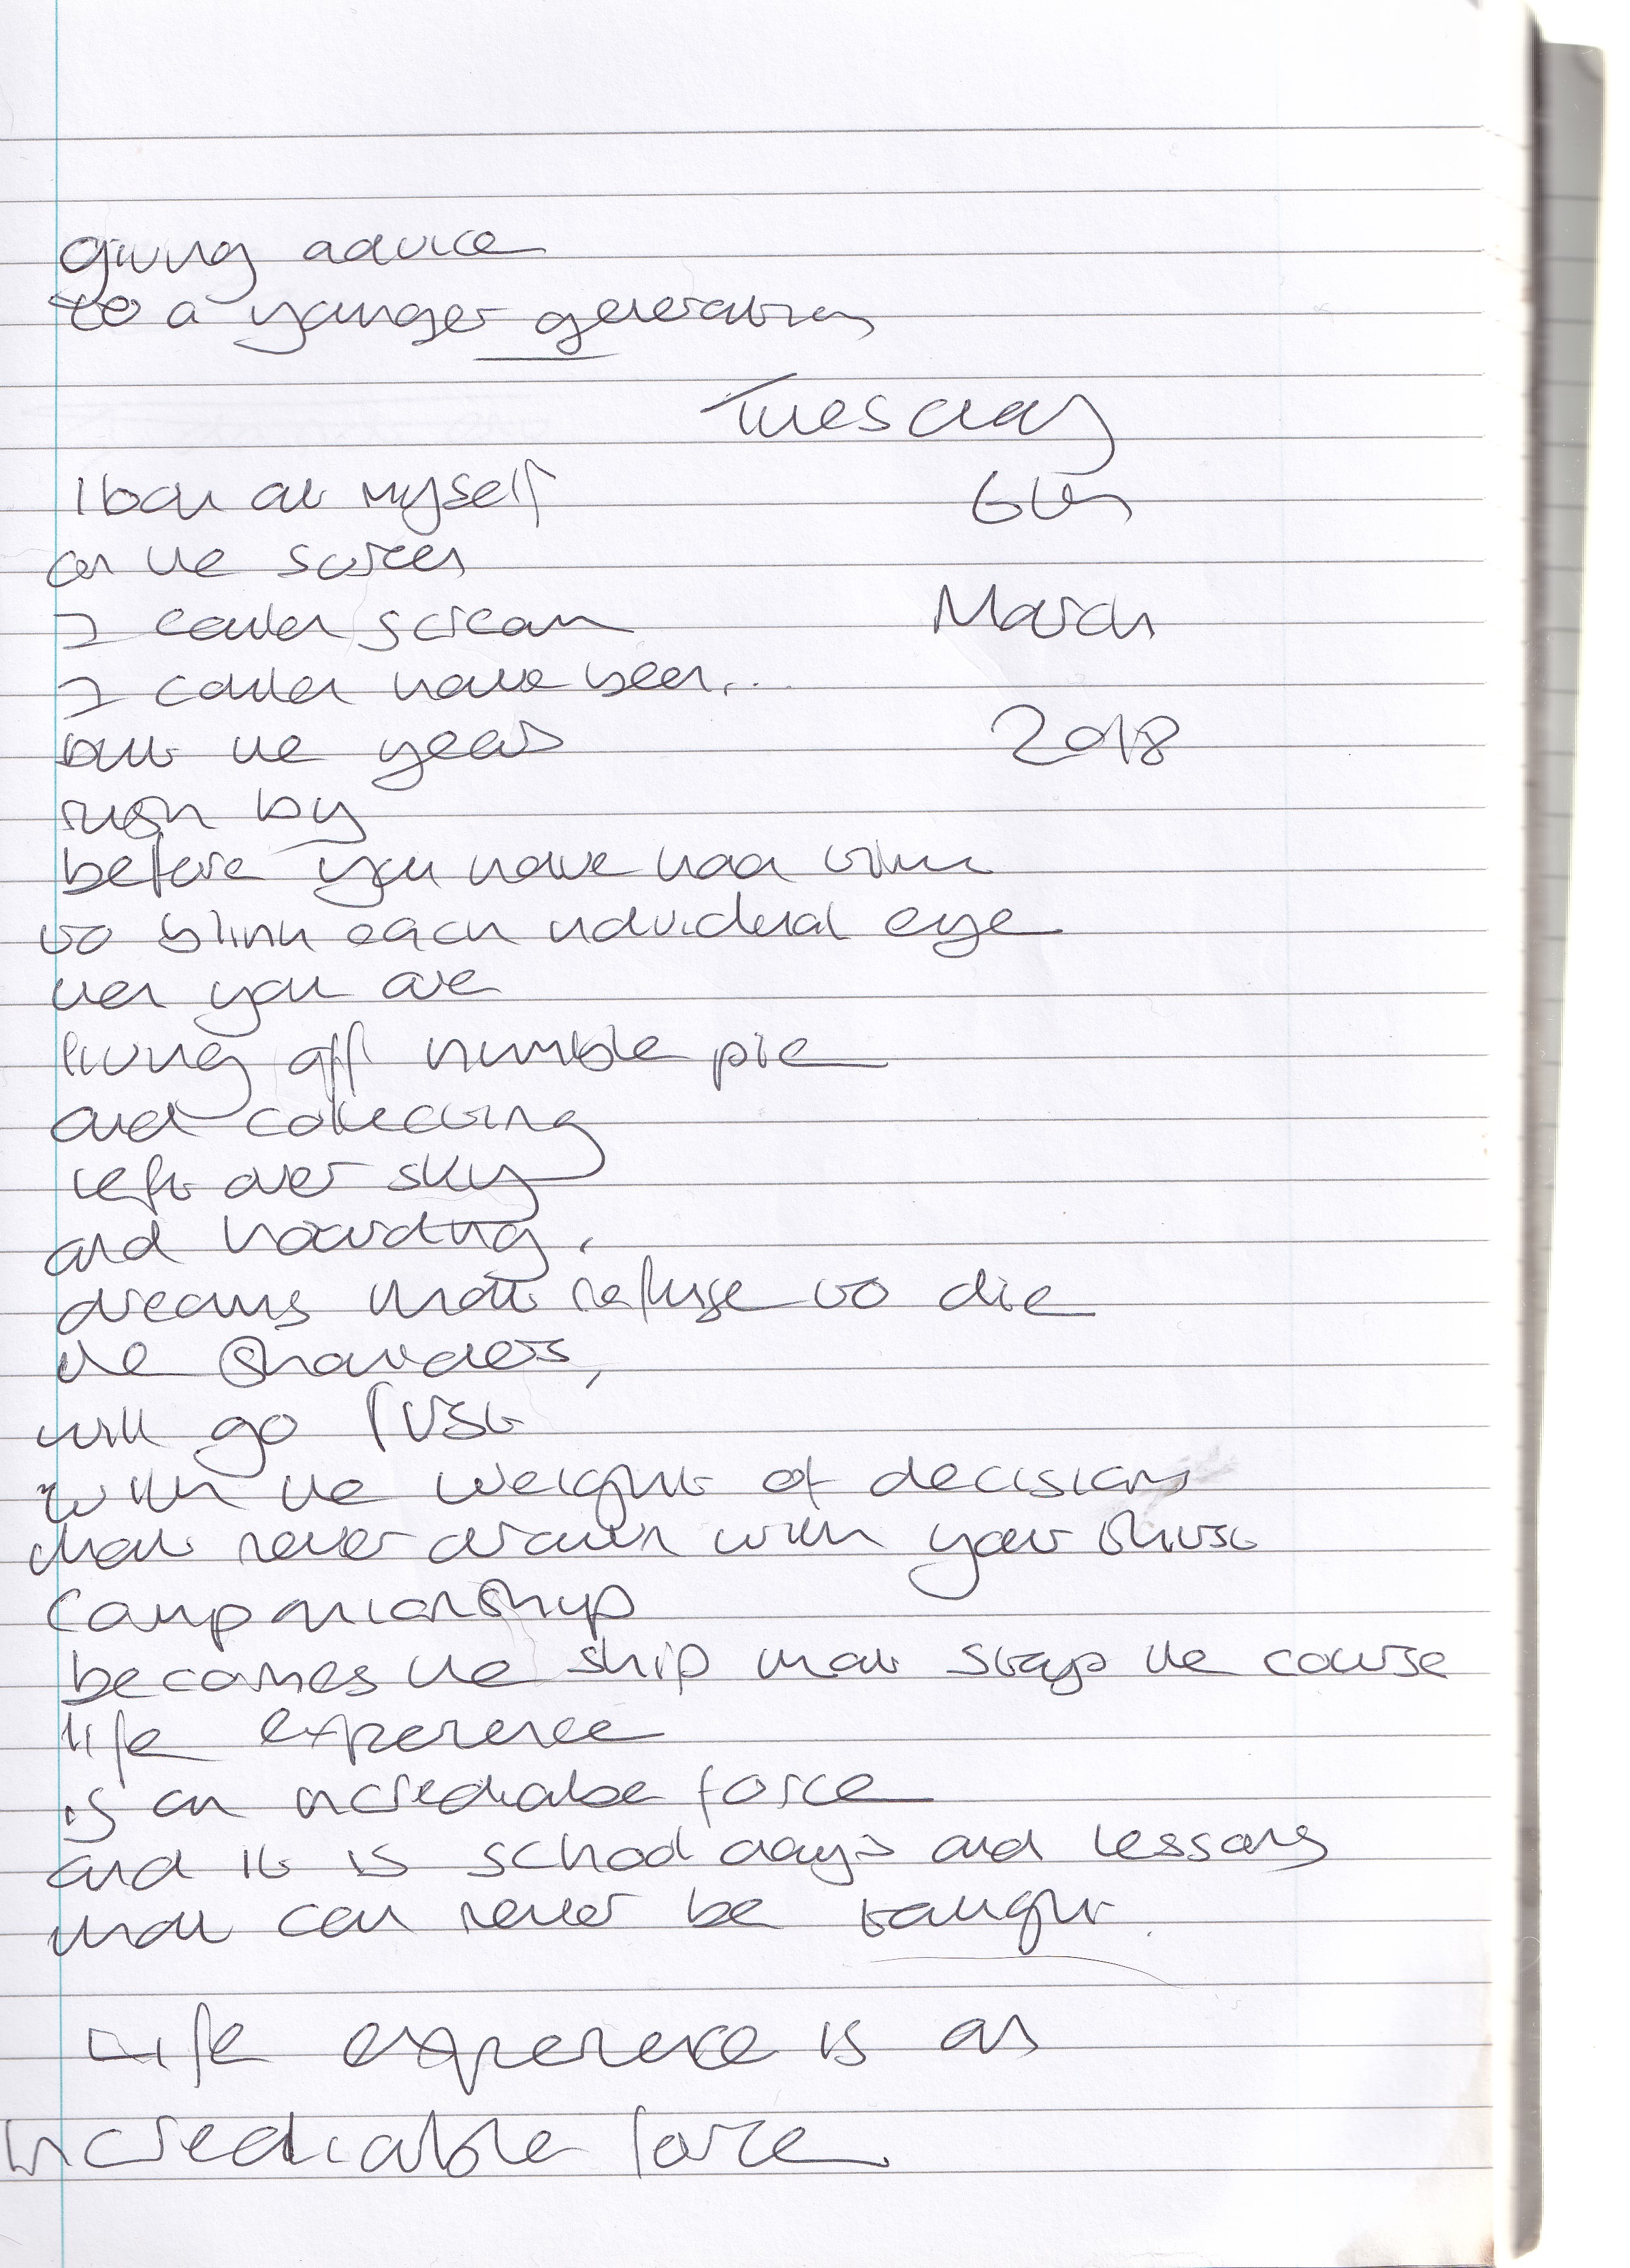 giving advice
to a younger generation
Tuesday
I look at myself
6th
on the screen
I could scream
March
I could have been...
but the years
2018
rush by
before you have had time
to blink each individual eye
then you are
living off humble pie
and collecting
left over sky
and hoarding,
dreams that refuse to die
the shoulders,
will go first
with the weight of decisions
that never drown with your thirst
Companionship
becomes the ship that stays the course
life experience
is an incrediable force
and it is school days and lessons
that can never be taught.
Life experience is an
incrediable force